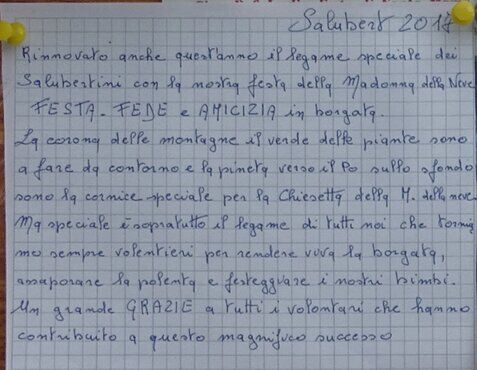 Salubert 2017
Rinnovato anche quest'anno il legame speciale dei
Salubertini con la nostra festa della Madonna della Neve
FESTA - FEDE e AMICIZIA in borgata.
La corona delle montagne il verde delle piante sono
a fare da contorno e la pineta verso il Po sullo sfondo
sono la cornice speciale per la Chiesetta della M. della neve.
Ma speciale è sopratutto il legame di tutti noi che tornia
mo sempre volentieri per rendere viva la borgata,
assaporare la polenta e festeggiare i nostri bimbi.
Un grande GRAZIE a tutti i volontari che hanno
contribuito a questo magnifico successo